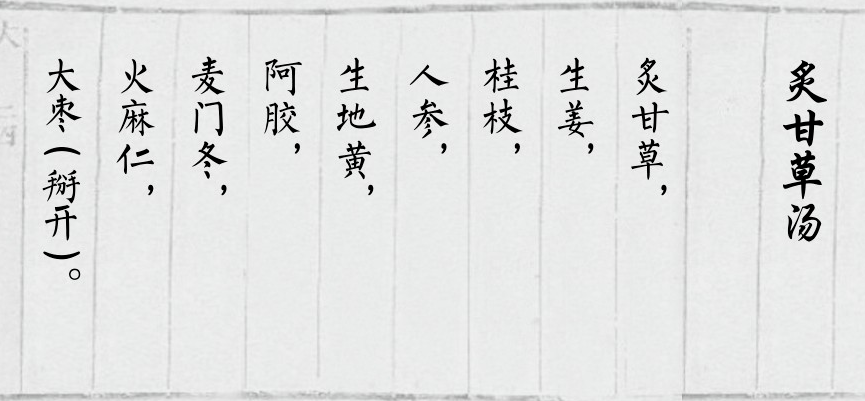 炙甘草汤
炙甘草，
生姜，
桂枝，
人参，
生地黄，
阿胶，
麦门冬，
火麻仁，
大枣(掰开)。